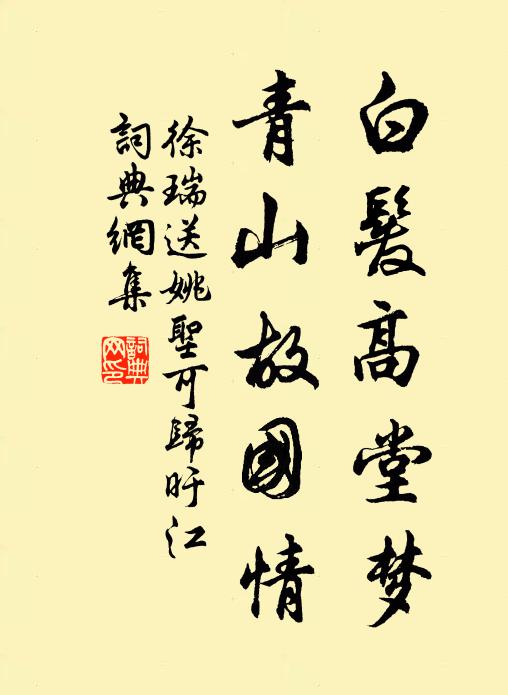 白髮高堂梦
青山故國情
徐瑞送姚聖可歸旴江
詞典網集
詞典网印